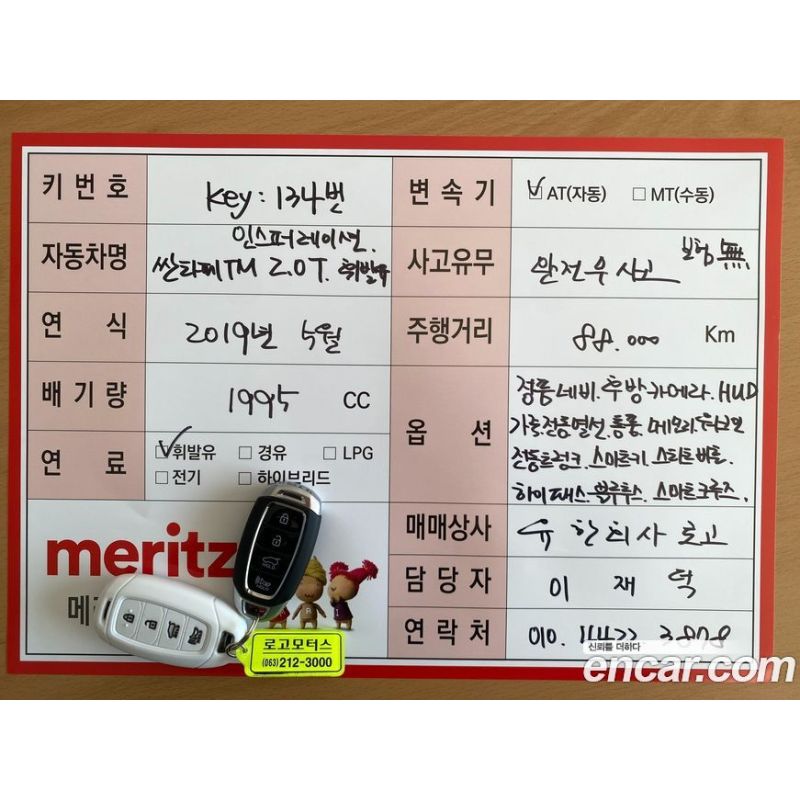 키 번호
Key : 134번
변속기
☑ AT(자동) ☐ MT(수동)
자동차명
인스퍼레이션.
싼타페TM 2.0T. 휘발유
사고유무
완전무사고
보험無
연 식
2019년 5월
주행거리
88.000 Km
배기량
1995 CC
옵 션
정품네비. 후방카메라. HUD
가죽전동열선. 통풍. 메모리.
전동트렁크. 스마트키. 스타트버튼.
하이패스. 블루투스. 스마트크루즈.
연 료
☑ 휘발유 ☐ 경유 ☐ LPG
☐ 전기 ☐ 하이브리드
매매상사
유한회사 로고
담당자
이 재 덕
연락처
010. 3878
meritz
메
HOLD
로고모터스
(063)212-3000
신뢰를 더하다
encar.com